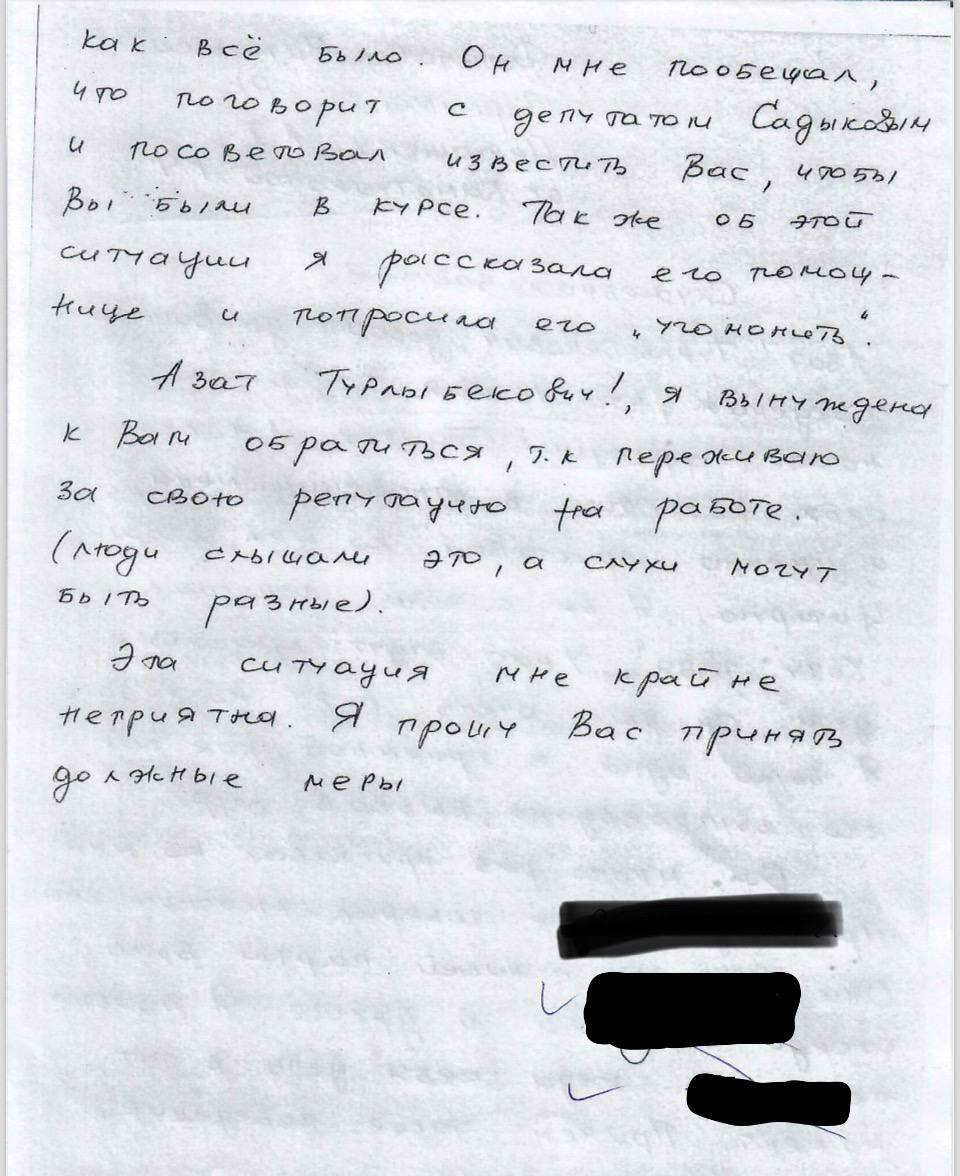 как всё было. Он мне пообещал,
что поговорит с депутатом Садыковым
и посоветовал известить Вас, чтобы
Вы были в курсе. Так же об этой
ситуации я рассказала его помощ-
нице и попросила его „угомонить“.
Азат Турлыбекович!, я вынуждена
к Вам обратиться, т.к переживаю
за свою репутацию на работе.
(люди слышали это, а слухи могут
быть разные).
Эта ситуация мне крайне
неприятна. Я прошу Вас принять
должные меры